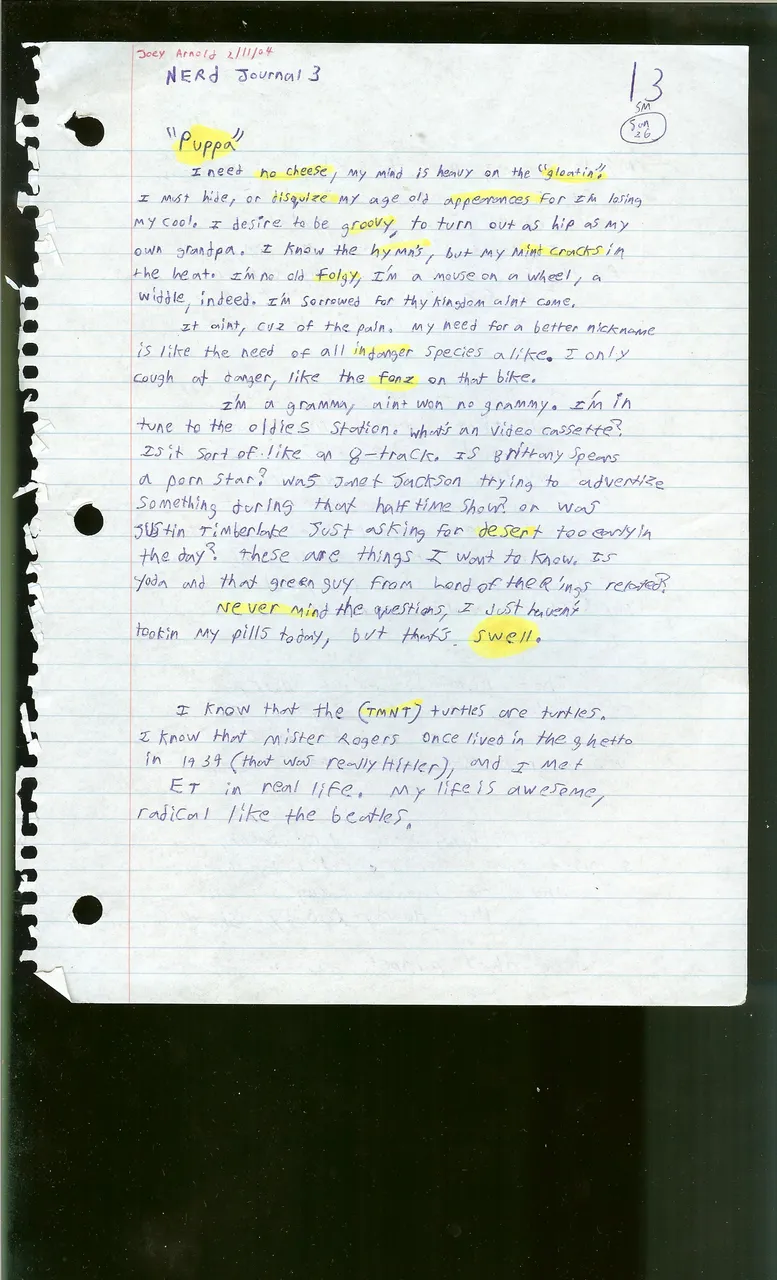 Joey Arnold 2/11/04
NERd Journal 3
13
SM
Sun
26
"Puppa"
I need no cheese, my mind is heavy on the "gloatin".
I must hide, or disquize my age old apperences for I'm losing
my cool. I desire to be groovy, to turn out as hip as my
own grandpa. I know the hymn's, but my mint cracks in
the heat. I'm no old folgy, I'm a mouse on a wheel, a
widdle, indeed. I'm sorrowed for thy kingdom aint come.
It aint, cuz of the pain. My need for a better nickname
is like the need of all indanger species alike. I only
cough at danger, like the fonz on that bike.
I'm a gramma, aint won no grammy. I'm in
tune to the oldies station. What's an video cassette?
Is it sort of like an 8-track. Is Brittany Spears
a porn star? was Janet Jackson trying to advertize
something during that half time show? or was
Justin Timberlake just asking for desert too early in
the day? these are things I want to know. Is
Yoda and that green guy from Lord of the Rings related?
Never mind the questions, I just haven't
tookin my pills today, but that's swell.
I know that the (TMNT) turtles are turtles.
I know that Mister Rogers once lived in the ghetto
in 1939 (that was really Hitler), and I met
ET in real life. My life is awesome,
radical like the beatles.